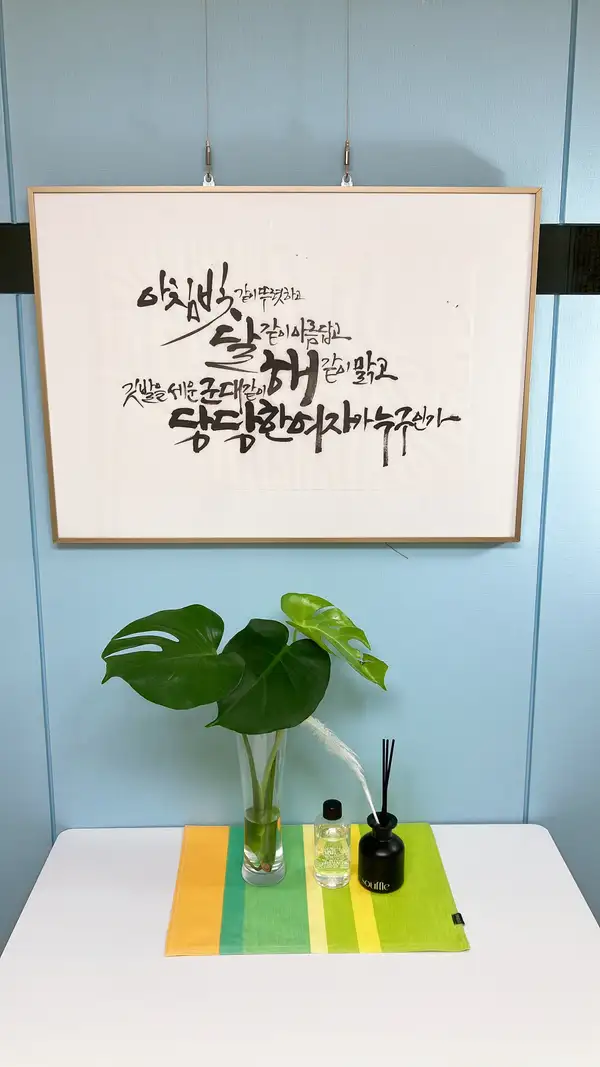 아침빛 같이 뚜렷하고
달 같이 아름답고
해 같이 맑고
깃발을 세운 군대 같이
당당한 여자가 누구인가
souffle